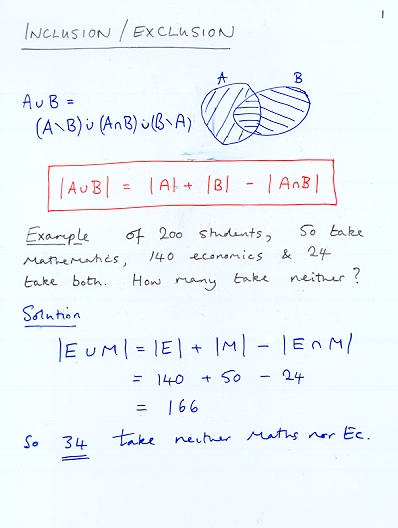 1
INCLUSION / EXCLUSION
A B
A∪B =
(A\B) ∪̇ (A∩B) ∪̇ (B\A)
|A∪B| = |A| + |B| - |A∩B|
Example of 200 students, 50 take
Mathematics, 140 economics & 24
take both. How many take neither?
Solution
|E ∪ M| = |E| + |M| - |E ∩ M|
= 140 + 50 - 24
= 166
So 34 take neither Maths nor Ec.